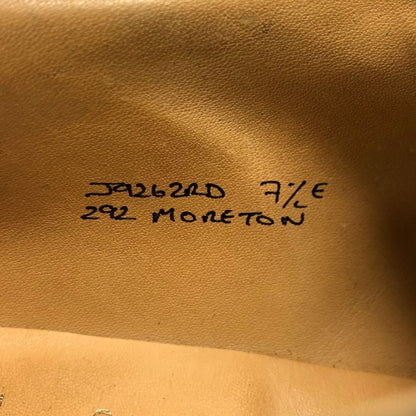 J9262RD 7½ E
292 MORETON